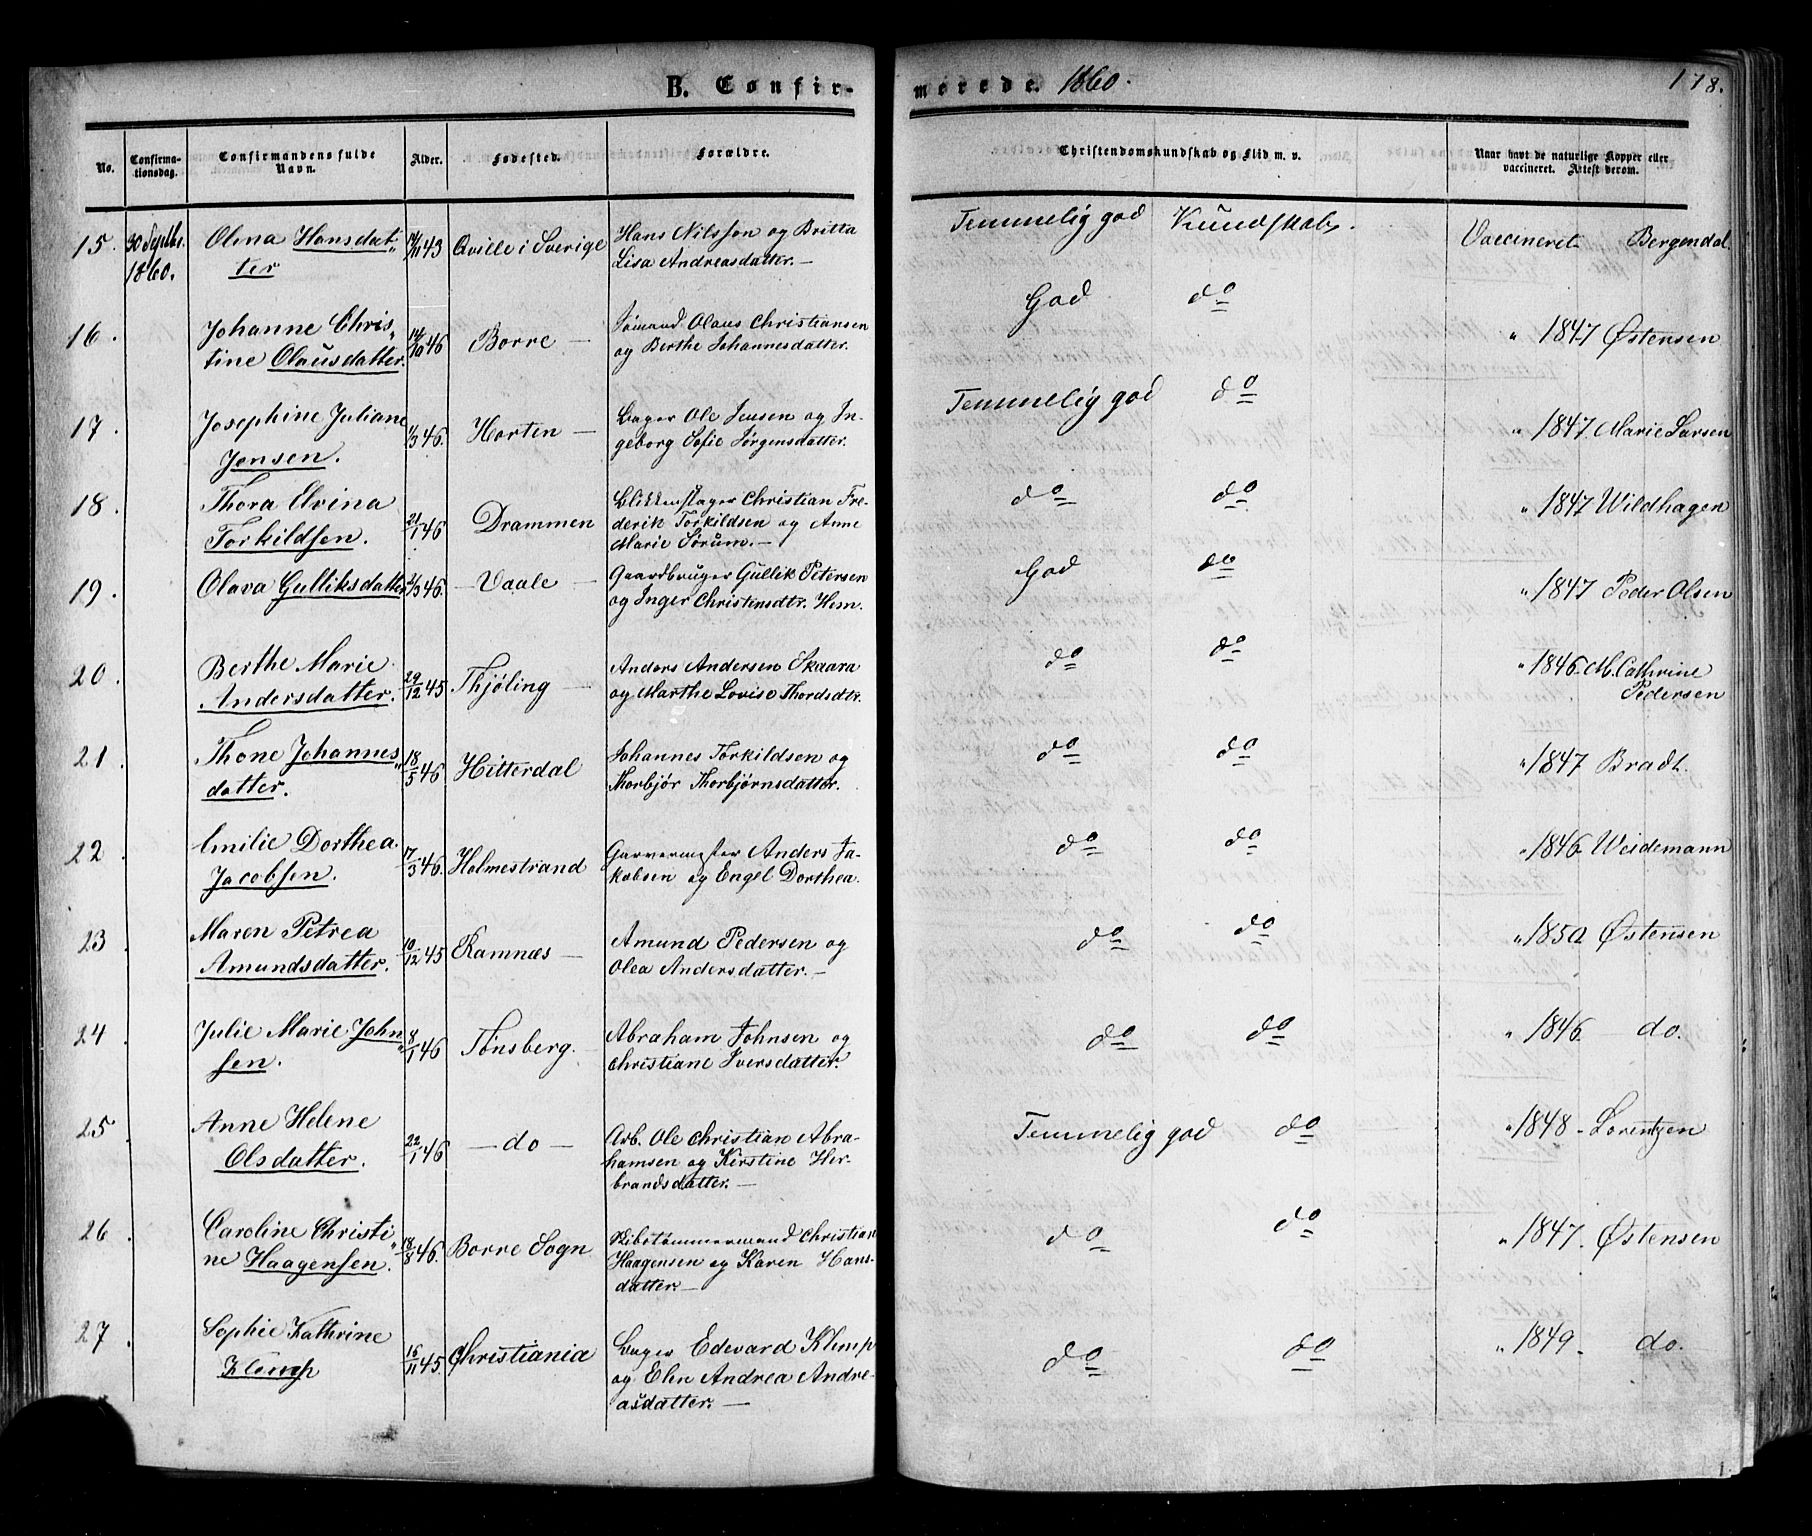 B. Confir-
merede. 1860.
178.
No.
Confirma-
tionsdag.
Confirmandens fulde
Navn.
Alder.
Fødested.
Forældre.
Christendomskundskab og Flid m. v.
Naar havt de naturlige Kopper eller
vaccineret. Attest derom.
15. 30 Septbr. Olina Hansdat„ 17/11 43 Qville i Sverige Hans Nilsson og Britta Temmelig god Kundskab. Vaccineret Bergendal
1860. ter Lisa Andreasdatter.—
16. Johanne Chris„ 14/10 46 Borre — Sømand Olaus Christiansen God do „ 1847 Østensen
tine Olausdatter. og Berthe Johannesdatter.
17. Josephine Juliane 1/3 46. Horten — Bager Ole Jensen og In- Temmelig god do „ 1847. Marie Larsen
Jensen. geborg Sofie Jørgensdatter.
18. Thora Elvina 21/1 46 Drammen Blikkenslager Christian Fre- do do „ 1847 Wildhagen
Torkildsen. derik Torkildsen og Anne
Marie Sørum.—
19. Olava Gulliksdatter 46. — Vaale — Gaardbruger Gullik Petersen God do „ 1847 Peder Olsen
og Inger Christensdtr. Hem.
20. Berthe Marie 29/12 45 Thjøling — Anders Andersen Skaara do do „ 1846. M. Cathrine
Andersdatter. og Marthe Lovise Thordsdtr. Pedersen
21. Thone Johannes„ 18/5 46 Hitterdal Johannes Torkildsen og do do „ 1847 Bradt.
datter. Thorbjør Thorbjørnsdatter.
22. Emilie Dorthea 17/3 46. Holmestrand Garvermester Anders Ja- do do „ 1846 Weidemann
Jacobsen. kobsen og Engel Dorthea.
23. Maren Petrea 10/12 45 Ramnæs — Amund Pedersen og do do „ 1850 Østensen
Amundsdatter. Olea Andersdatter.—
24. Julie Marie John„ 8/1 46 Tønsberg. Abraham Johnsen og do do „ 1846 do.
sen. Christiane Iversdatter.
25. Anne Helene 22/1 46 — do — Arb. Ole Christian Abra- Temmelig god do „ 1848 - Lorentzen
Olsdatter. hamsen og Kirstine Her-
brandsdatter.—
26. Caroline Christi„ 18/8 46. Borre Sogn Skibstømmermand Christian do do „ 1847. Østensen
ne Haagensen. Haagensen og Karen Hans-
datter.—
27. Sophie Kathrine 16/11 45. Christiania Bager Edevard Klemp do do „ 1849. do.
Klemp og Elen Andrea Andre-
asdatter.—